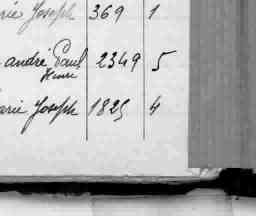 rie Joseph 369 1
andré Paul 2349 5
Henri
arie Joseph 1825 4